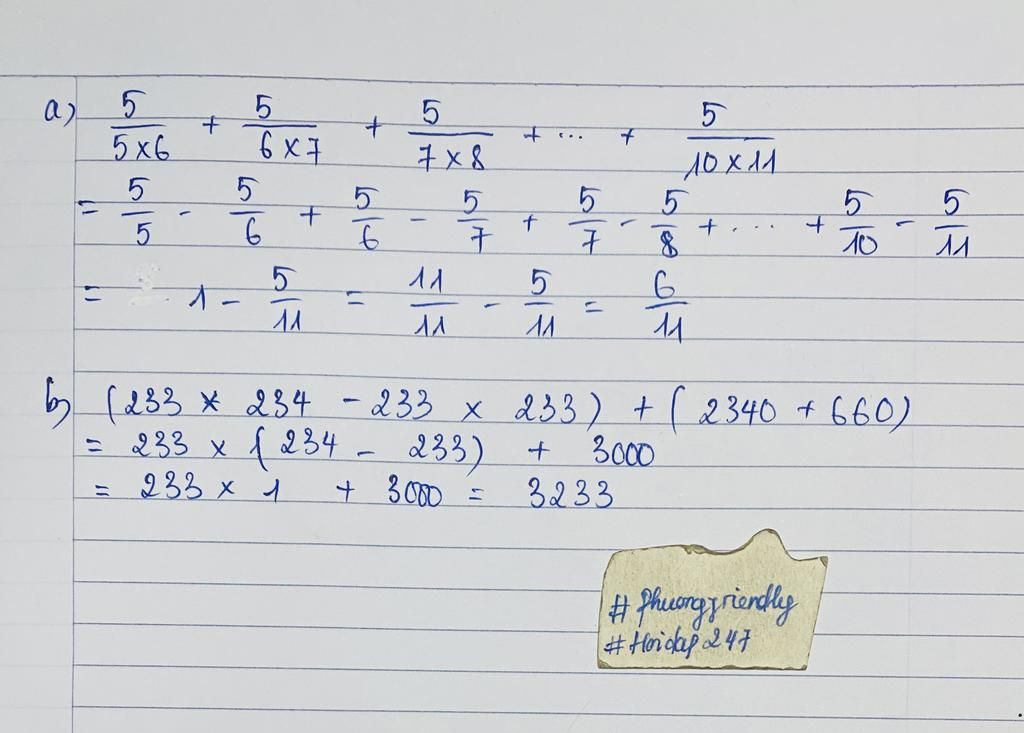 a) 5/5×6 + 5/6×7 + 5/7×8 + ... + 5/10×11
= 5/5 - 5/6 + 5/6 - 5/7 + 5/7 - 5/8 + ... + 5/10 - 5/11
= 1 - 5/11 = 11/11 - 5/11 = 6/11
b) (233 × 234 - 233 × 233) + (2340 + 660)
= 233 × (234 - 233) + 3000
= 233 × 1 + 3000 = 3233
# Phuongfriendly
# Hoidap247